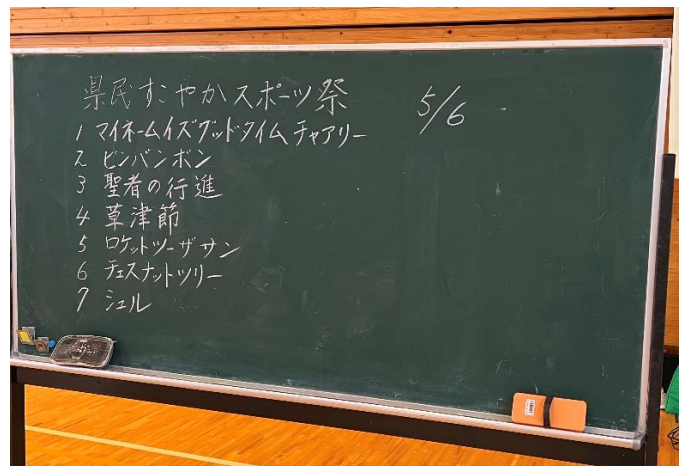 県民すこやかスポーツ祭 5/6
1 マイネームイズグッドタイムチャアリー
2 ビンバンボン
3 聖者の行進
4 草津節
5 ロケットツーザサン
6 チェスナットツリー
7 シェル